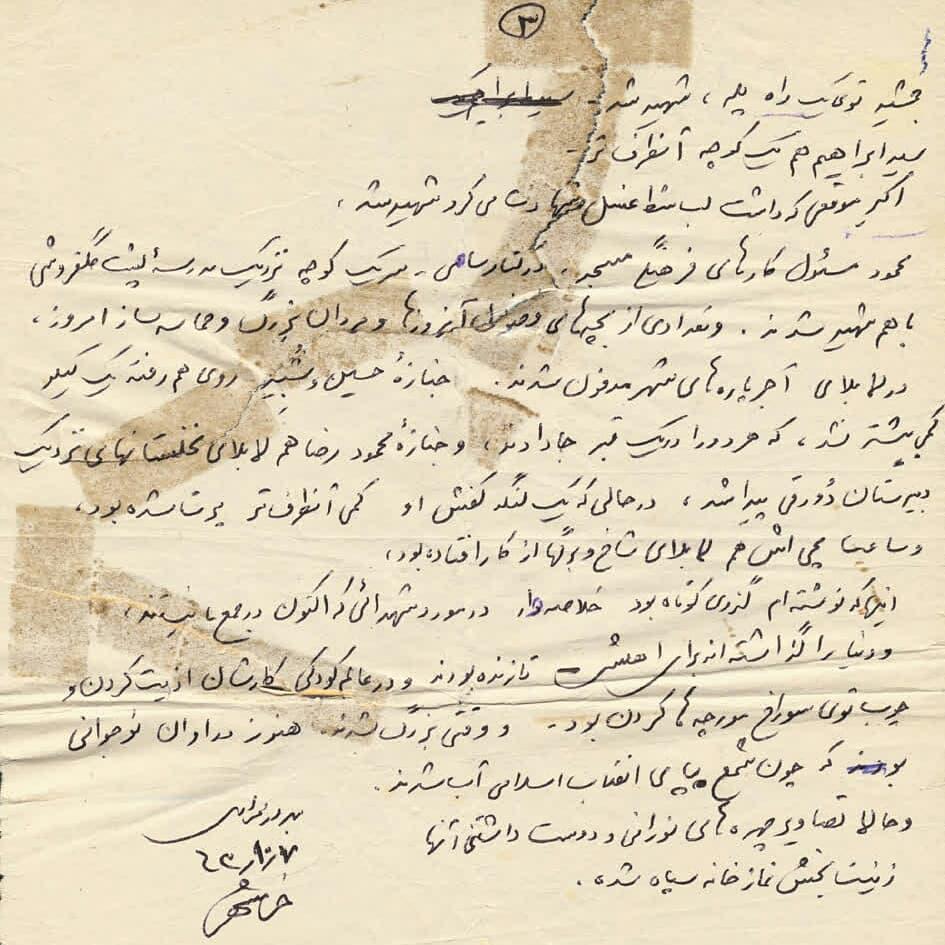 ۳
جمشید توی یک راه پله، شهید شد -
سید ابراهیم هم یک کوچه آنطرف تر -
اکبر موقعی که داشت لب شط غسل شهادت می کرد شهید شد،
محمود مسئول کارهای فرهنگی مسجد، در کنار - سر یک کوچه نزدیک مدرسهٔ پشت گلفروشی
با هم شهید شدند. و تعدادی از بچه های آنروزها و مردان بزرگ و حماسه ساز امروز،
در لابلای آجرپاره های شهر مدفون شدند. جنازهٔ حسین و بُشیر روی هم رفته یک کیلو
کمی بیشتر نشد، که هر دو را در یک قبر جا دادند، و جنازهٔ محمود رضا هم لابلای نخلستانهای نزدیک
دبیرستان دُورقی پیدا شد، در حالی که یک لنگه کفش او کمی آنطرف تر پرت شده بود،
و ساعت مچی اش هم لابلای شاخ و برگها از کار افتاده بود،
اینها که نوشته ام گذری کوتاه بود خلاصه وار در مورد شهدائی که اکنون در جمع ما نیستند،
و دنیا را گذاشته اند برای اهلش - تا زنده بودند و در عالم کودکی کارشان اذیت کردن و
چوب توی سوراخ مورچه ها کردن بود - و وقتی بزرگ شدند، هنوز در اوان نوجوانی
بودند که چون شمع بپای انقلاب اسلامی آب شدند.
و حالا تصاویر چهره های نورانی و دوست داشتنی آنها
زینت بخش نمازخانه سپاه شده.
بهروز مرادی
خرمشهر